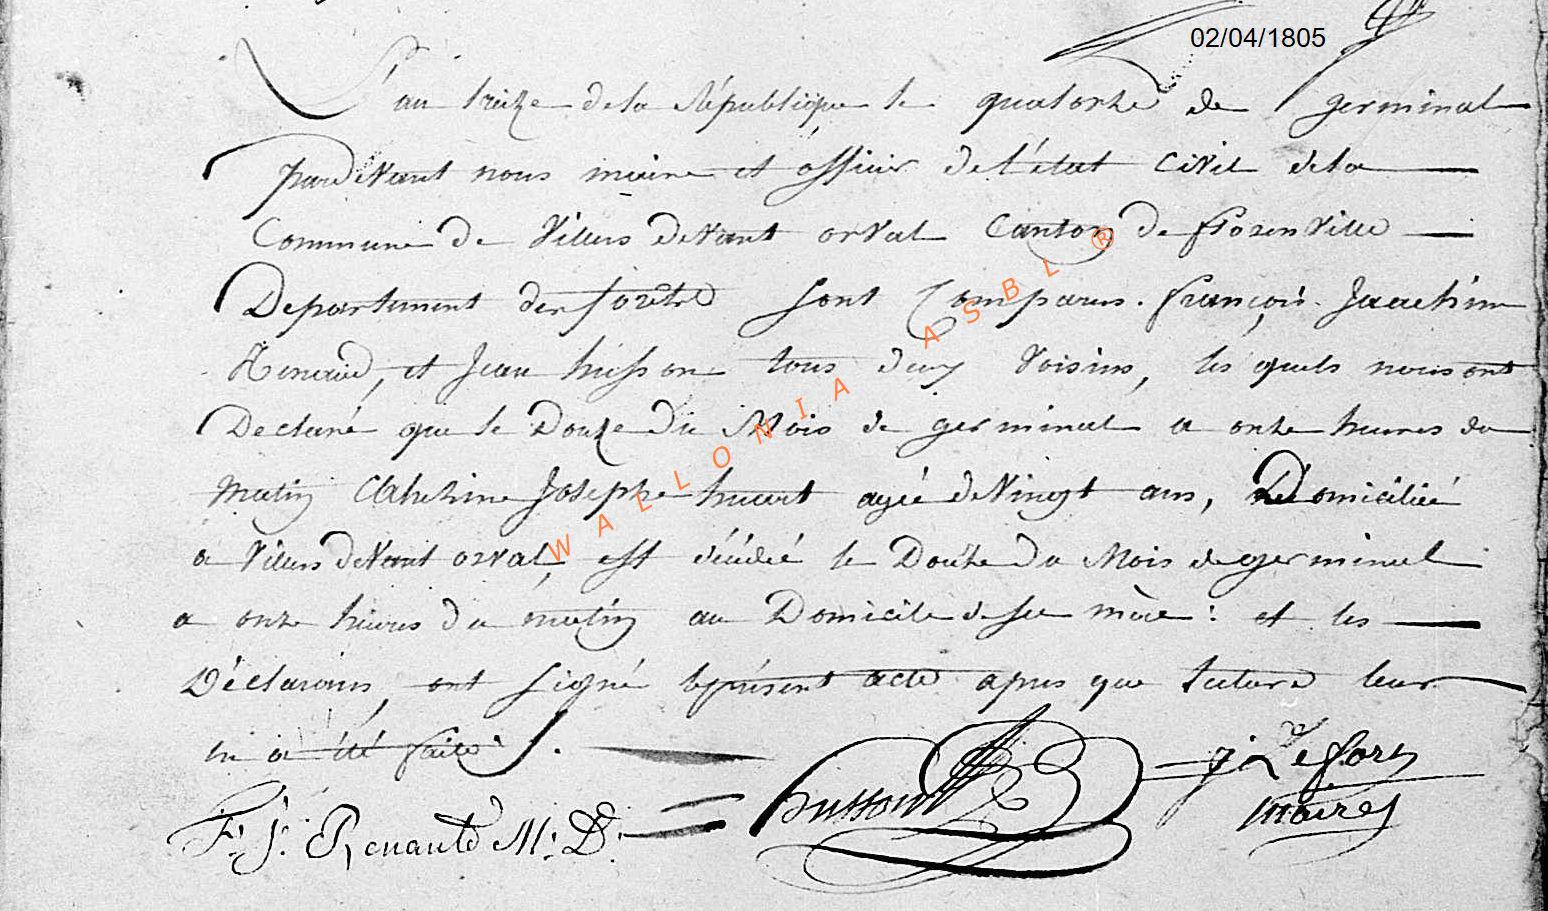 02/04/1805
L'an treize de la République le quatorze de germinal
pardevant nous maire et officier de l'état civil de la
Commune de Villers devant orval Canton de florenville
Departement des forêts sont Comparus. françois. Joachim
Renauld, et Jean husson tous deux Voisins, les quels nous ont
Declaré que le Douze du Mois de germinal a onze heures du
matin Catherine Josephe huart agée de Vingt ans, Domiciliée
a Villers devant orval, est décédée le Douze du Mois de germinal
a onze heures du matin au Domicile de sa mère : et les
Déclarans, ont signé le présent acte apres que lecture leur
en a été faite.
WALLONIA ASBL ®
husson J Lefort
F: J: Renauld M: D: maire